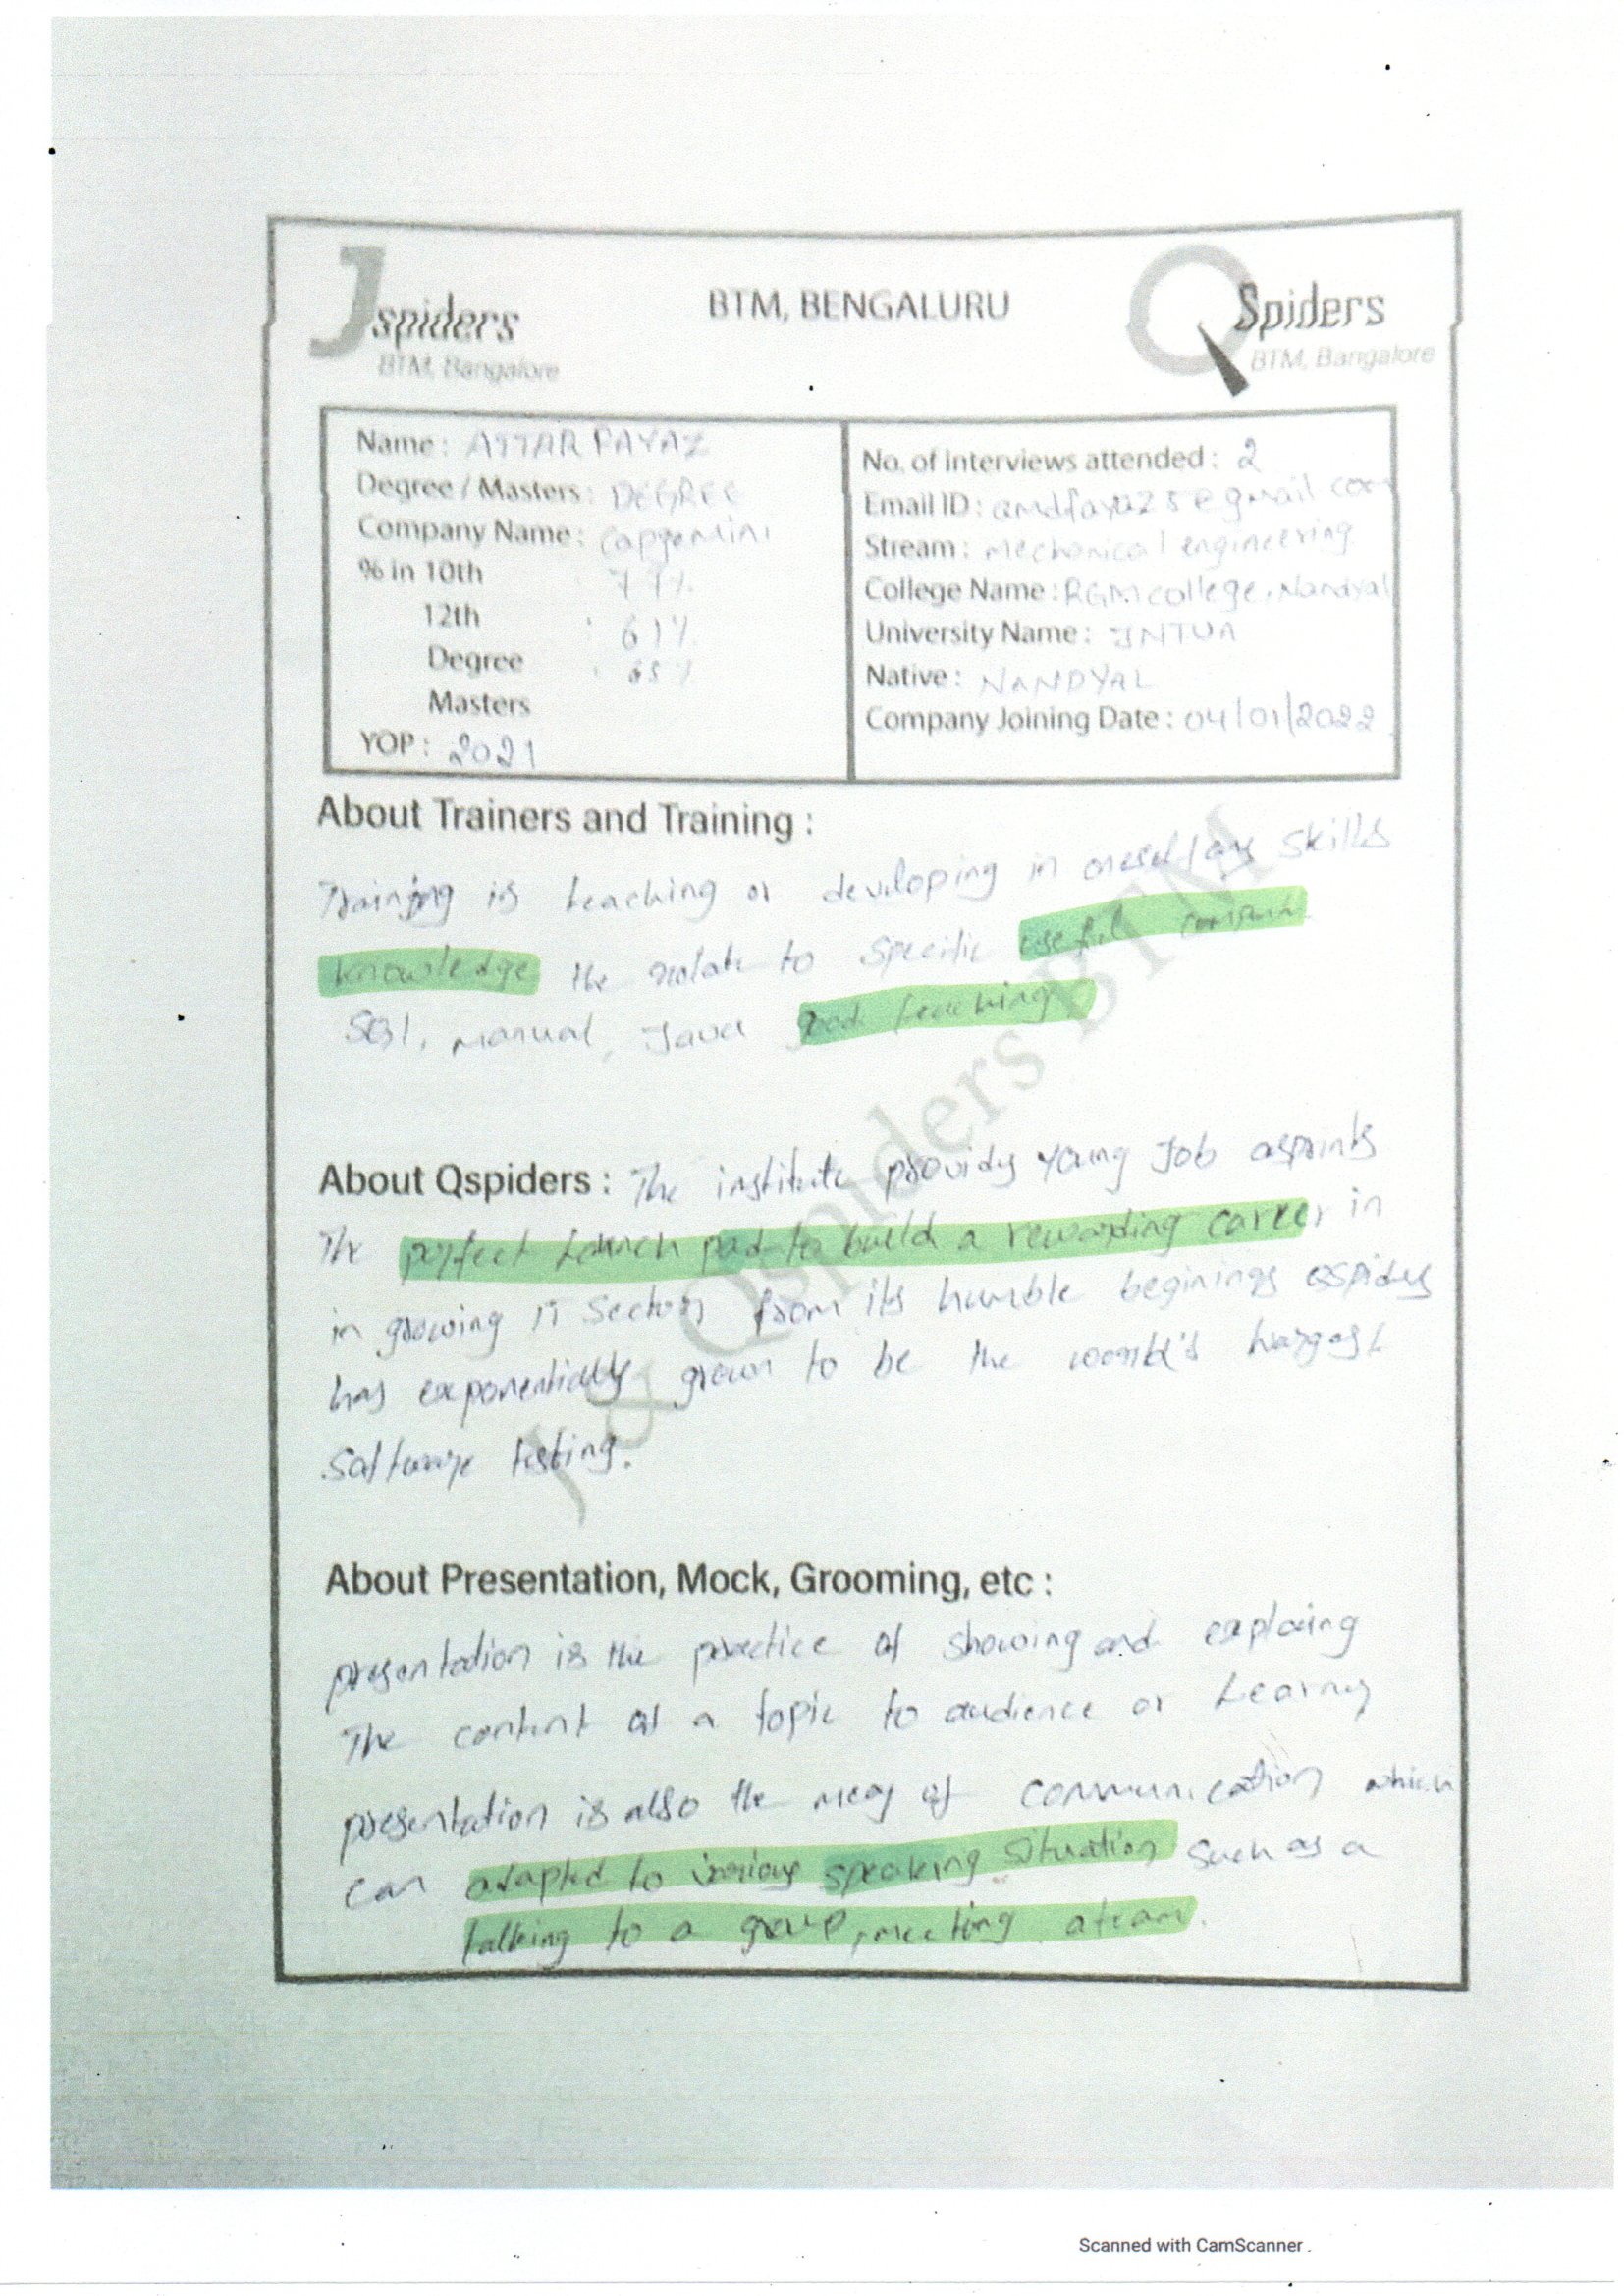 Jspiders
BTM, Bangalore
BTM, BENGALURU
QSpiders
BTM, Bangalore
Name : ATTAR FAYAZ
Degree / Masters : DEGREE
Company Name : Capgemini
% in 10th : 77%
12th : 61%
Degree : 65%
Masters
YOP : 2021
No. of interviews attended : 2
Email ID : amdfayaz5@gmail.com
Stream : Mechanical engineering
College Name : RGM college, Nandyal
University Name : JNTUA
Native : NANDYAL
Company Joining Date : 04/01/2022
About Trainers and Training :
Training is teaching or developing in skills
knowledge the relate to specific useful
SQl, manual, Java good teaching
About Qspiders : The institute provides young Job asprints
The perfect Launch pad to build a rewarding career in
in growing IT sector from its humble beginings Qspiders
has exponentially grown to be the world's largest
software testing.
About Presentation, Mock, Grooming, etc :
presentation is the practice of showing and explaing
The content of a topic to audience or Learny
presentation is also the of communication which
can adapted to various speaking situation such as a
talking to a group, meeting a team.
J & Qspiders BTM
Scanned with CamScanner